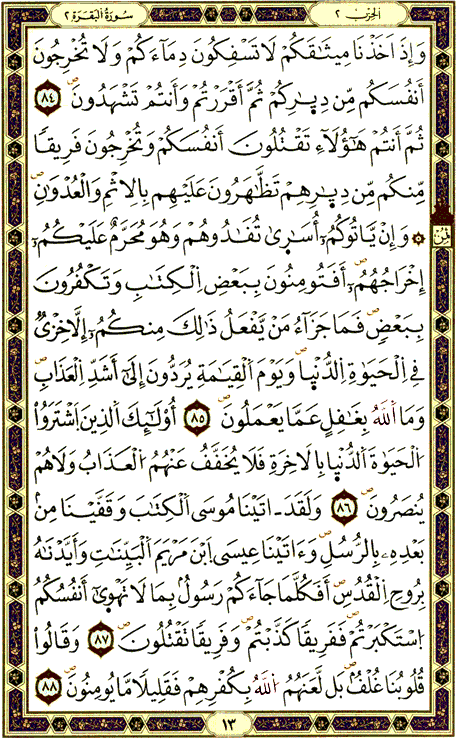 الحزب ٢
سورة البقرة ٢
وَإِذَ اَخَذْنَا مِيثَٰقَكُمْ لَا تَسْفِكُونَ دِمَآءَكُمْ وَلَا تُخْرِجُونَ
أَنفُسَكُم مِّن دِيٰ۪رِكُمْ ثُمَّ أَقْرَرْتُمْ وَأَنتُمْ تَشْهَدُونَۖ ٨٤
ثُمَّ أَنتُمْ هَٰٓؤُلَآءِ تَقْتُلُونَ أَنفُسَكُمْ وَتُخْرِجُونَ فَرِيقاٗ
مِّنكُم مِّن دِيٰ۪رِهِمْ تَظَّٰهَرُونَ عَلَيْهِم بِالِاثْمِ وَالْعُدْوَٰنِۖ
۞ وَإِنْ يَّاتُوكُمُۥٓ أُسَٰر۪يٰ تُفَٰدُوهُمْ وَهُوَ مُحَرَّمٌ عَلَيْكُمُۥٓ
ثمن
إِخْرَاجُهُمُۥٓۖ أَفَتُومِنُونَ بِبَعْضِ اِ۬لْكِتَٰبِ وَتَكْفُرُونَ
بِبَعْضٖۖ فَمَا جَزَآءُ مَنْ يَّفْعَلُ ذَٰلِكَ مِنكُمُۥٓ إِلَّا خِزْيٞ
فِے اِ۬لْحَيَوٰةِ اِ۬لدُّنْي۪اۖ وَيَوْمَ اَ۬لْقِيَٰمَةِ يُرَدُّونَ إِلَىٰٓ أَشَدِّ اِ۬لْعَذَابِۖ
وَمَا اَ۬للَّهُ بِغَٰفِلٍ عَمَّا يَعْمَلُونَۖ ٨٥ أُوْلَٰٓئِكَ اَ۬لذِينَ اَ۪شْتَرَوُاْ
اُ۬لْحَيَوٰةَ اَ۬لدُّنْي۪ا بِالَاخِرَةِۖ فَلَا يُخَفَّفُ عَنْهُمُ اُ۬لْعَذَابُ وَلَا هُمْ
يُنصَرُونَۖ ٨٦ وَلَقَدَ اٰتَيْنَا مُوسَى اَ۬لْكِتَٰبَ وَقَفَّيْنَا مِنۢ
بَعْدِهِۦ بِالرُّسُلِۖ وَءَاتَيْنَا عِيسَى اَ۪بْنَ مَرْيَمَ اَ۬لْبَيِّنَٰتِ وَأَيَّدْنَٰهُ
بِرُوحِ اِ۬لْقُدُسِۖ أَفَكُلَّمَا جَآءَكُمْ رَسُولُۢ بِمَا لَا تَهْو۪يٰٓ أَنفُسُكُمُ
اُ۪سْتَكْبَرْتُمْۖ فَفَرِيقاٗ كَذَّبْتُمْ وَفَرِيقاٗ تَقْتُلُونَۖ ٨٧ وَقَالُواْ
قُلُوبُنَا غُلْفُۢۖ بَل لَّعَنَهُمُ اُ۬للَّهُ بِكُفْرِهِمْ فَقَلِيلاٗ مَّا يُومِنُونَۖ ٨٨
١٣